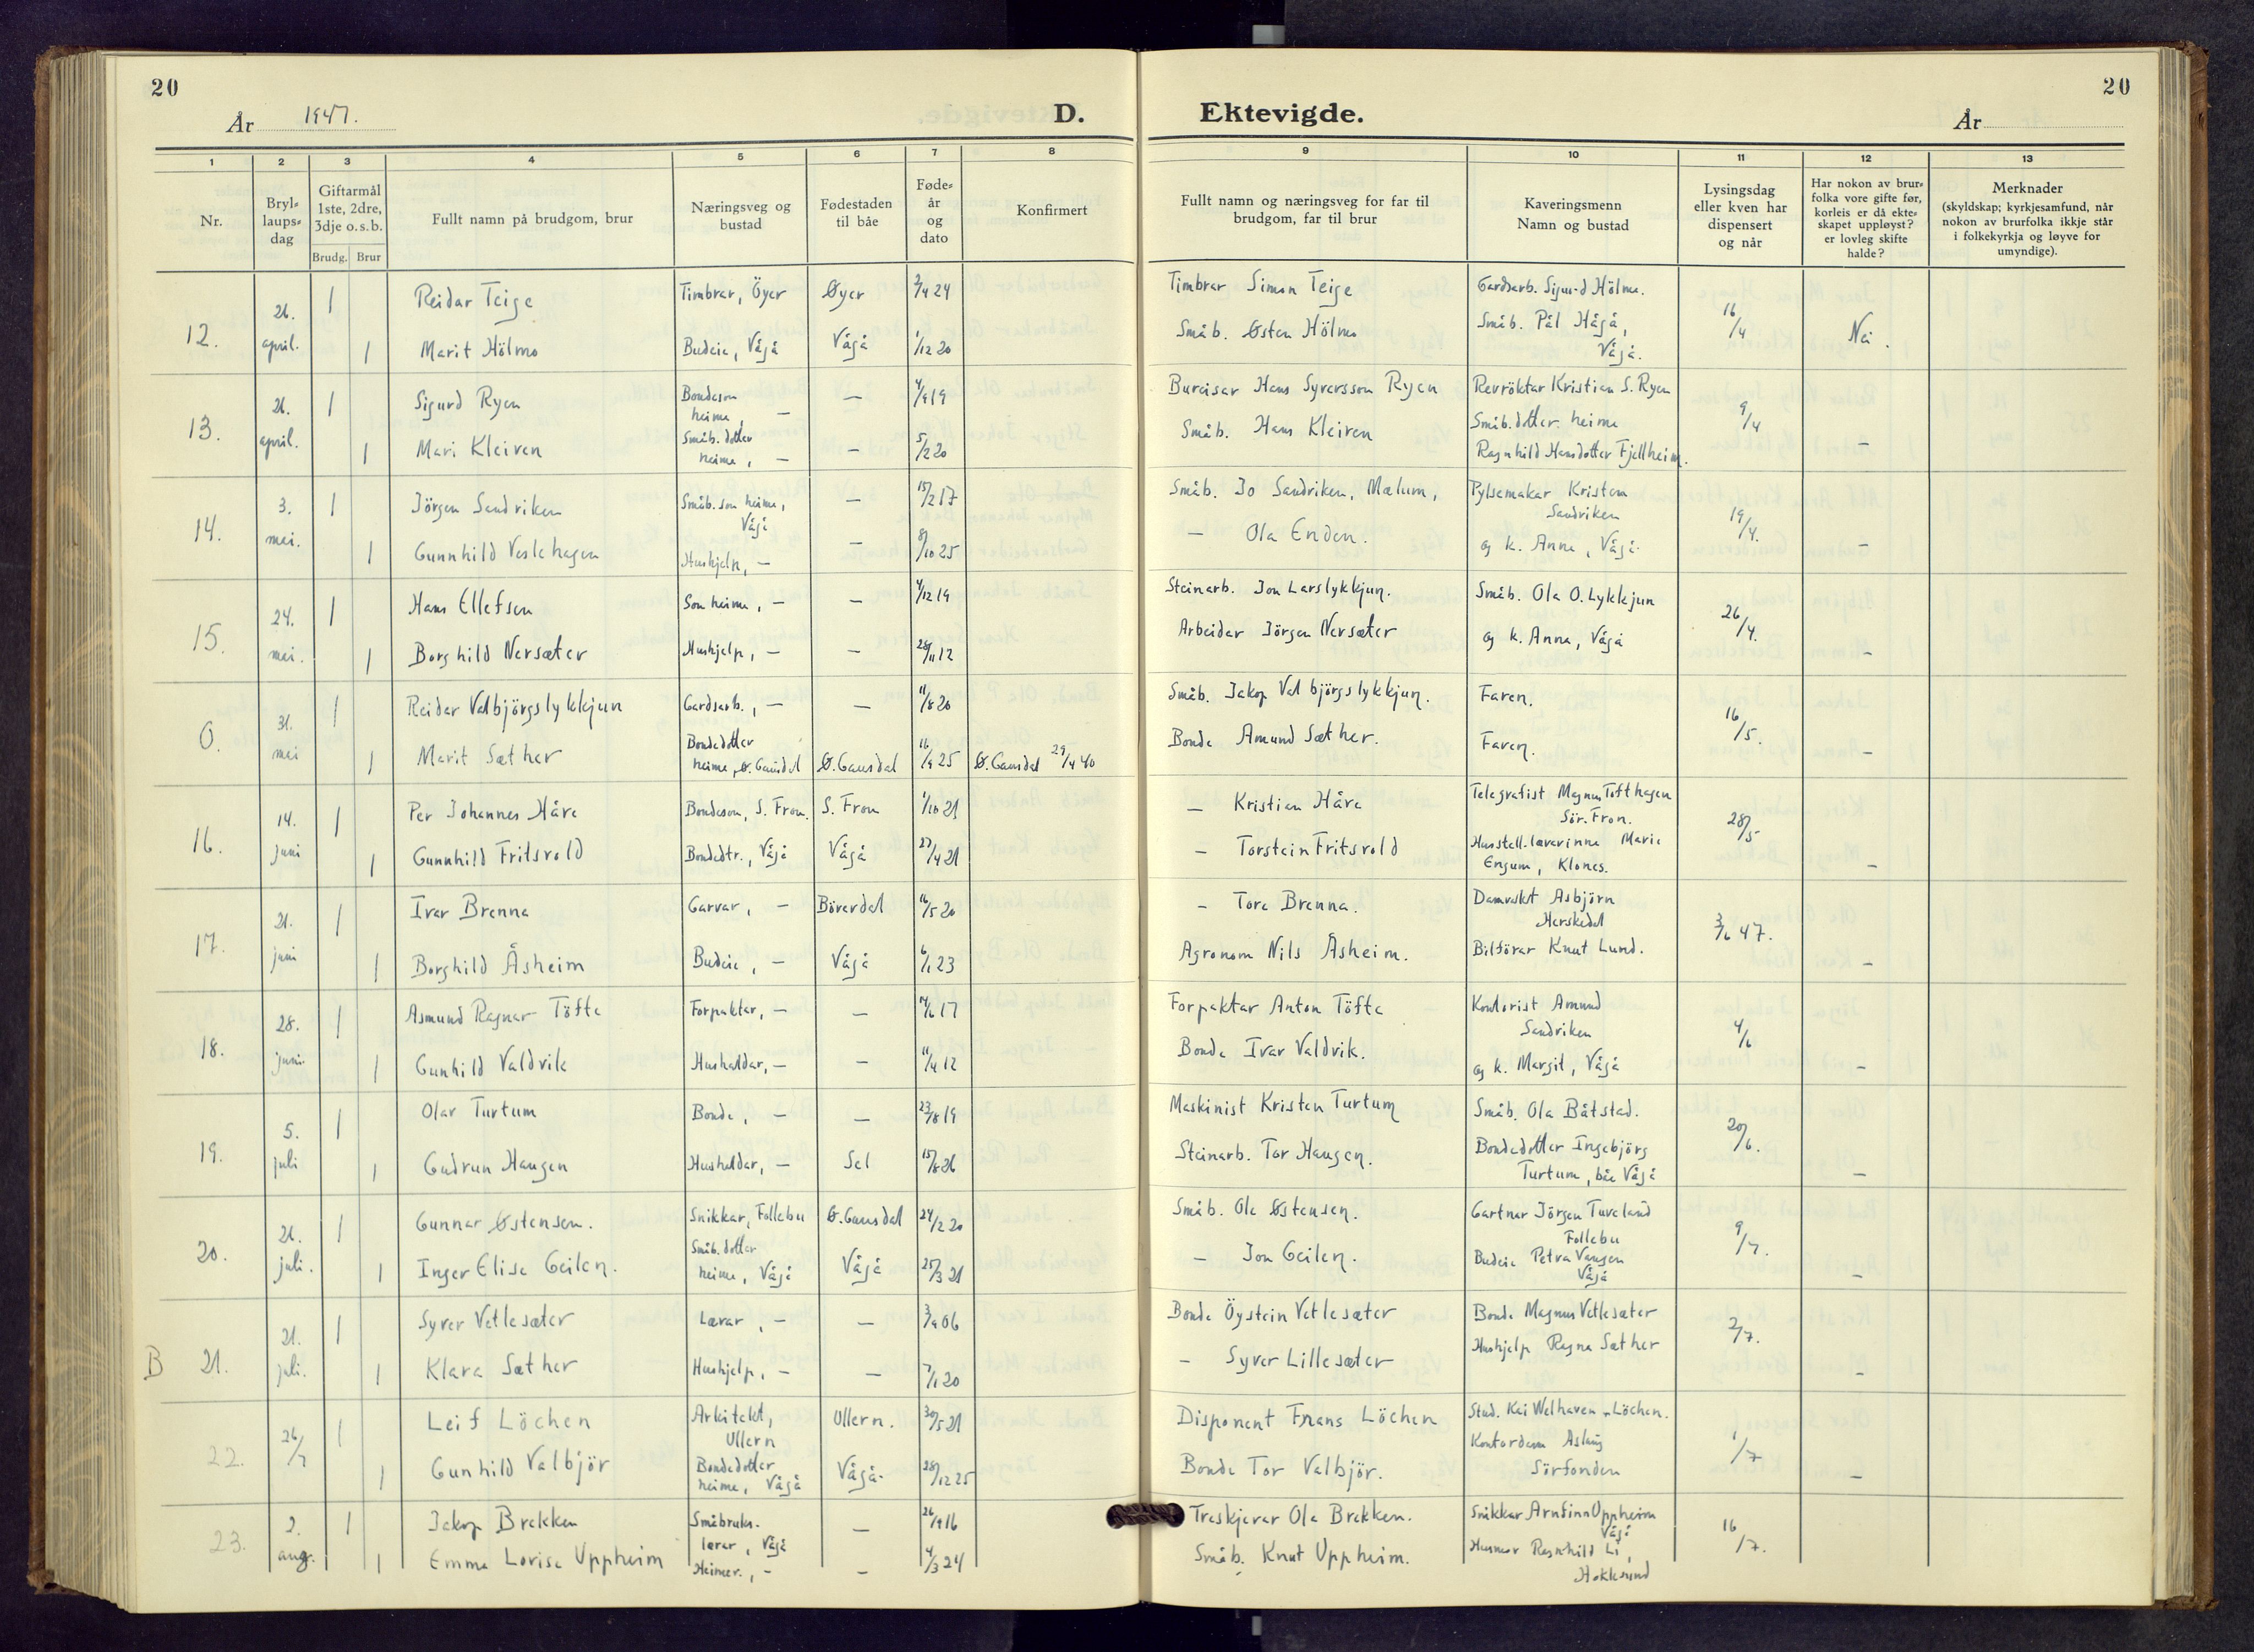 20
År 1947.
D.
1 2 3 4 5 6 7 8
Nr.
Bryllaupsdag
Giftarmål 1ste, 2dre, 3dje o.s.b.
Brudg. Brur
Fullt namn på brudgom, brur
Næringsveg og bustad
Fødestaden til båe
Føde-år og dato
Konfirmert
Ektevigde.
År
20
9 10 11 12 13
Fullt namn og næringsveg for far til brudgom, far til brur
Kaveringsmenn Namn og bustad
Lysingsdag eller kven har dispensert og når
Har nokon av brurfolka vore gifte før, korleis er då ekteskapet uppløyst? er lovleg skifte halde?
Merknader (skyldskap; kyrkjesamfund, når nokon av brurfolka ikkje står i folkekyrkja og løyve for umyndige).
12. 26. april. 1 Reidar Teige Timbrar, Öyer Øyer 2/4 24 Timbrar Simen Teige Gardsarb. Sigurd Hölmo. 16/4 Nei.
1 Marit Hölmo Budeie, Vågå Vågå 1/12 20 Småb. Østen Hölmo Småb. Pål Hågå, Vågå.
13. 26. april. 1 Sigurd Ryen Bondeson heime, — — 4/9 19 Bureisar Hans Syversson Ryen Revröktar Kristian S. Ryen 9/4 –
1 Mari Kleiven Småb.dotter heime, — — 5/2 20 Småb. Hans Kleiven Småb.dotter heime Ragnhild Hansdotter Fjellheim.
14. 3. mai. 1 Jörgen Sandviken Småb. son heime, Vågå — 15/2 17 Småb. Jo Sandviken, Mælum, Pylsemakar Kristen Sandviken 19/4. –
1 Gunnhild Veslehagen Hushjelp, — — 8/10 25 — Ola Enden. og k. Anne, Vågå.
15. 24. mai. 1 Hans Ellefsen Son heime, — — 4/12 19 Steinarb. Jon Larslykkjun. Småb. Ola O. Lykkjun 26/4. –
1 Borghild Nersæter Hushjelp, — — 28/11 12 Arbeidar Jörgen Nersæter og k. Anna, Vågå
0. 31. mai 1 Reidar Valbjörgslykkjun Gardsarb., — — 11/8 20 Småb. Jakop Valbjörgslykkjun. Faren. 16/5. –
1 Marit Sæther Bondedotter heime, Ø. Gausdal Ø. Gausdal 16/9 25 Ø. Gausdal 29/9 40 Bonde Amund Sæther. Faren.
16. 14. juni 1 Per Johannes Håve Bondeson, S. Fron. S. Fron 1/10 21 — Kristian Håve Telegrafist Magnus Tofthagen Sör. Fron. 28/5 –
1 Gunnhild Fritsvold Bondedtr., Vågå Vågå 27/4 21 – Torstein Fritsvold Husstell-lærerinne Marie Engum, Klones.
17. 21. juni 1 Ivar Brenna Garvar, — Böverdal 16/5 20 – Tore Brenna. Damvakt Asbjörn Herskedal 3/6 47. –
1 Borghild Åsheim Budeie, — Vågå 6/1 23 Agronom Nils Åsheim. Bilförar Knut Lund.
18. 28. juni 1 Asmund Ragnar Töfte Forpaktar, — — 14/6 17 Forpaktar Anton Töfte Kontorist Amund Sandviken 4/6 –
1 Gunhild Valdvik Hushaldar, — — 11/4 12 Bonde Ivar Valdvik. og k. Margit, Vågå
19. 5. juli 1 Olav Turtum Bonde, — — 23/8 19 Maskinist Kristen Turtum Småb. Ola Båtstad. 20/6. –
1 Gudrun Haugen Hushaldar, — Sel 15/8 26 Steinarb. Tor Haugen. Bondedotter Ingebjörg Turtum, båe Vågå
20. 21. juli. 1 Gunnar Østensen. Snikkar, Follebu Ø. Gausdal 24/2 20 Småb. Ole Østensen. Gartner Jörgen Tuveland Follebu 9/7. –
1 Inger Elise Geilen. Småb.dotter heime, Vågå Vågå 25/3 21 – Jon Geilen. Budeie Petra Vangen Vågå
B 21. 21. juli. 1 Syver Vetlesæter Lærar, — — 3/9 06 Bonde Öystein Vetlesæter Bonde Magnus Vetlesæter 2/7. –
1 Klara Sæther Hushjelp, — — 7/1 20 – Syver Lillesæter Hushjelp Ragna Sæther
22. 26/7 1 Leif Löchen Arkitekt, Ullern Ullern. 30/5 21 Disponent Frans Löchen Stud. Kai Welhaven Löchen. 1/7 –
1 Gunhild Valbjör Bondedotter heime, Vågå Vågå. 28/12 25 Bonde Tor Valbjör. Kontordame Aslaug Sörfonden
23. 2. aug. 1 Jakop Brekken Småbruks-lærar, Vågå — 26/9 16 Treskjerar Ola Brekken. Snikkar Arnfinn Oppheim Vågå 16/7.
1 Emma Lovise Uppheim Heimev., – – 4/3 24 Småb. Knut Uppheim. Husmor Ragnhild Li, Hokksund